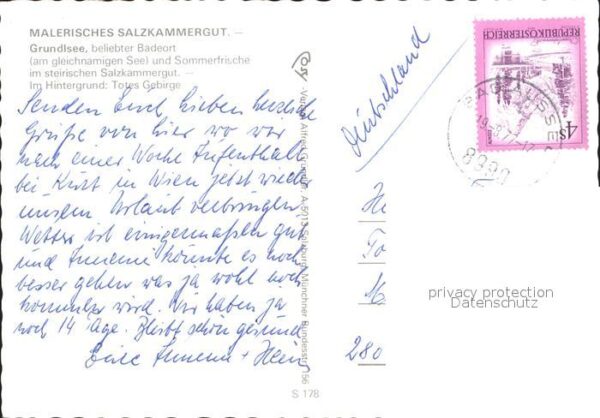 MALERISCHES SALZKAMMERGUT. —
Grundlsee, beliebter Badeort
(am gleichnamigen See) und Sommerfrische
im steirischen Salzkammergut. —
Im Hintergrund: Totes Gebirge
Senden Euch Lieben herzliche
Grüße von hier wo wir
nach einer Woche Aufenthalt
bei Kurt in Wien jetzt wieder
unseren Urlaub verbringen
Wetter ist einigermaßen gut
und könnte es noch
besser gehen was ja wohl noch
kommen wird. Wir haben ja
noch 14 Tage. Bleibt schön gesund
Eure + Heinz
Cosy
A-5013 Salzburg, Münchner Bundesstr. 156
S 178
Deutschland
He
To
280
REPUBLIK ÖSTERREICH
S 4
8990
privacy protection
Datenschutz